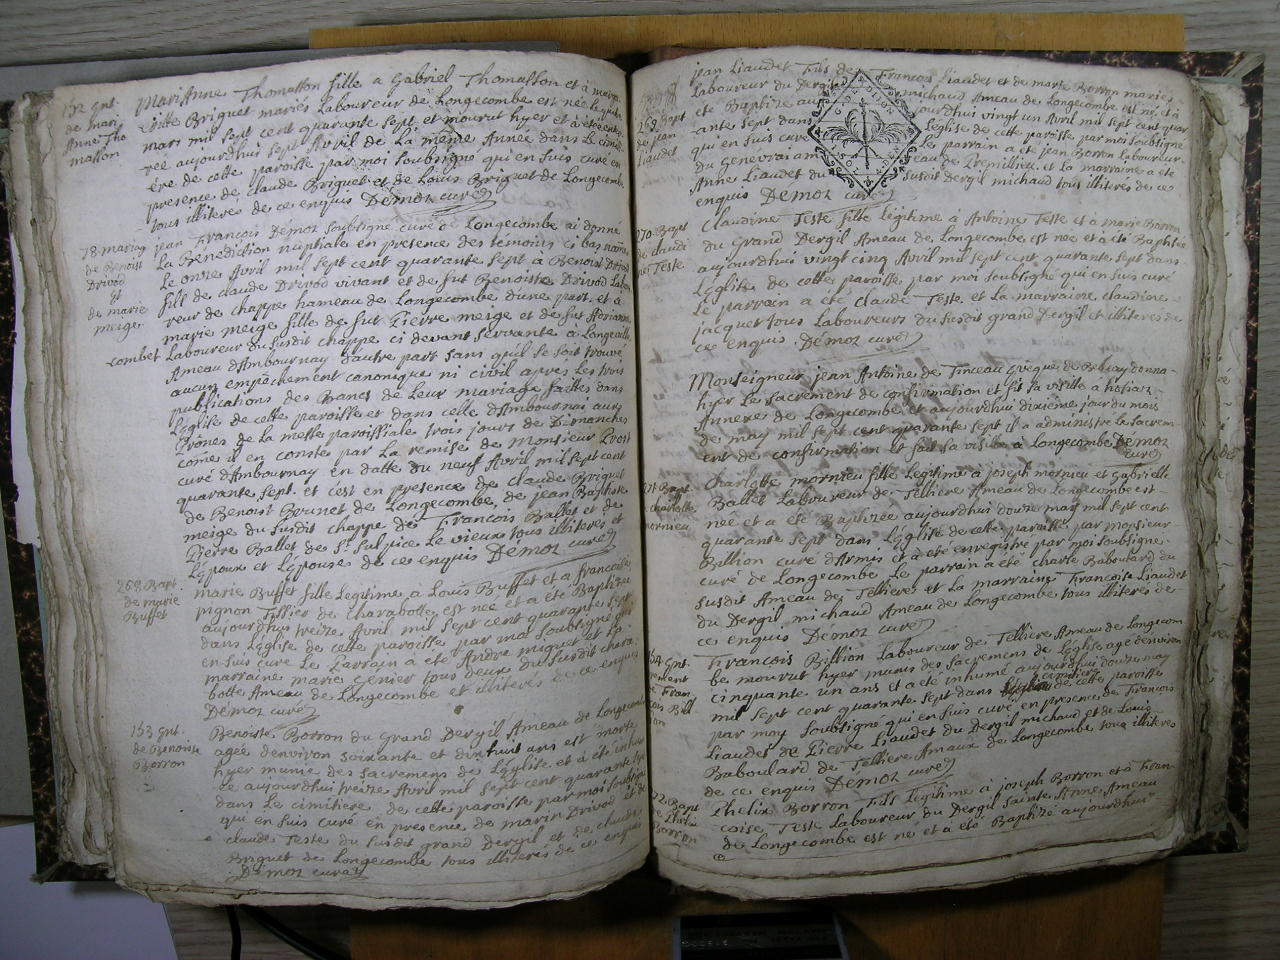 152 Ent.
de Mari
Anne Tho
masson
Marianne Thomasson fille a Gabriel Thomasson et à marie
Briguet mariés Laboureur de Longecombe est née le
mars mil sept cent quarante sept et mourut hyer et a été enter
rée aujourdhuy sept Avril de La même Année dans Le cimiti
ère de cette paroisse par moi soubsigné qui en suis curé en
presence de claude Briguet et de Louis Briguet de Longecombe
tous illiteres de ce enquis Démoz curé
78 mariag
de Benoist
Drivod
et
de marie
meige
jean François Démoz soubsigné curé de Longecombe ai donné
La Bénédiction nuptiale en presence des temoins ci bas nommé
Le onze Avril mil sept cent quarante sept à Benoist Drivod
fils de claude Drivod vivant et de fut Benoiste Drivod Labou
reur de chappe hameau de Longecombe d'une part, et à
marie meige fille de fut Pierre meige et de fut Adrianne
combet Laboureur du susdit chappe ci devant servante à Longeville
Ameau d'Ambournay d'autre part sans qu'il se soit trouvé
aucun empachement canonique ni civil apres les trois
publications des Bancs de Leur mariage faittes dans
L'église de cette paroisse et dans celle d'Ambournai aux
Prônes de la messe paroissiale trois jours de Dimanches
côme il en conste par La remise de Monsieur Prost
curé d'Ambournay en datte du neuf Avril mil sept cent
quarante sept. et c'est en presence de claude Briguet
de Benoist Brunet de Longecombe, de jean Baptiste
meige du susdit chappe de François Ballet et de
Pierre Ballet de St. Sulpice Le vieux tous illiteres et
L'Epoux et L'Epouse de ce enquis Demoz curé
268 Bapt.
de marie
Buffet
marie Buffet fille Legitime à Louis Buffet et a francoise
pignon Tissier de charabotte, est née et a été Baptizée
aujourdhui treize Avril mil sept cent quarante sept
dans L'église de cette paroisse par moi soubsigné qui
en suis curé Le parrain a été André miguet et La
marraine marie Genier tous deux du susdit chara
botte Ameau de Longecombe et illiterés de ce enquis
Démoz curé
153 Ent.
de Benoiste
Borron
Benoiste Borron du Grand Dergil Ameau de Longecombe
agée d'environ soixante et dix huit ans est morte
hyer munie des sacremens de L'église, et a été inhum
ée aujourdhui treize Avril mil sept cent quarante sept
dans Le cimitiere de cette paroisse par moi soubsigné
qui en suis curé en presence de marin Drivod et de
claude Teste du susdit grand Dergil et de claude
Briguet de Longecombe tous illiterés de ce enquis
Démoz curé
269 Bapt
de jean
Liaudet
jean Liaudet fils de François Liaudet et de marte Borron mariés
Laboureur du Dergil michaud Ameau de Longecombe est né, et a
été Baptizé aujourdhui vingt un Avril mil sept cent quar
ante sept dans L'église de cette paroisse par moi soubsigné
qui en suis curé Le parrain a été jean Borron Laboureur
du Genevrai am eau de Premillieu et La marraine a été
Anne Liaudet du susdit Dergil michaud tous illiteres de ce
enquis Démoz curé
GEN. DIJON
270 Bapt
de claudi
ne Teste
Claudine Teste fille Légitime à Antoine Teste et à marie Borron
du Grand Dergil Ameau de Longecombe est née et a été Baptisée
aujourdhui vingt cinq Avril mil sept cent quarante sept dans
L'église de cette paroisse, par moi soubsigné qui en suis curé
Le parrain a été claude Teste et La marraine claudine
jacquet tous Laboureurs du susdit grand Dergil et illiterés de
ce enquis. Démoz curé
Monseigneur jean Antoine de Tinceau Eveque de Bellay donna
hyer Le sacrement de confirmation et fit sa visite à
Annexe de Longecombe, et aujourdhui dixieme jour du mois
de may mil sept cent quarante sept il a administré La sacrem
ent de confirmation et fait sa visite à Longecombe Démoz
curé
271 Bapt
de
charlotte
mornieu
Charlotte mornieu fille Legitime à joseph mornieu et Gabrielle
Ballet Laboureur de Tellière Ameau de Longecombe est
née et a été Baptizée aujourdhui douze may mil sept cent
quarante sept dans L'église de cette paroisse par monsieur
Billion curé d'Armis et a été enregistré par moi soubsigné
curé de Longecombe Le parrain a été charle Baboulard du
susdit Ameau de Tellieres et La marraine Françoise Liaudet
du Dergil michaud Ameau de Longecombe tous illiteres de
ce enquis Demoz curé
154 Ent.
rement
de Fran
cois Bill
ion
François Billion Laboureur de Tellière Ameau de Longecom
be mourut hyer munis des sacremens de L'église agé d'environ
cinquante un ans et a été inhumé aujourdhui douze may
mil sept cent quarante sept dans cimitiere de cette paroisse
par moy soubsigné qui en suis curé en presence de François
Liaudet de Pierre Liaudet du Dergil michaud et de Louis
Baboulard de Telliere Amaux de Longecombe tous illiteres
de ce enquis Démoz curé
272 Bapt
de Phelix
Borron
Phelix Borron fils Legitime à joseph Borron et à Fran
coise Teste Laboureur du Dergil Sainte Anne Ameau
de Longecombe est né et a été Baptizé aujourdhui